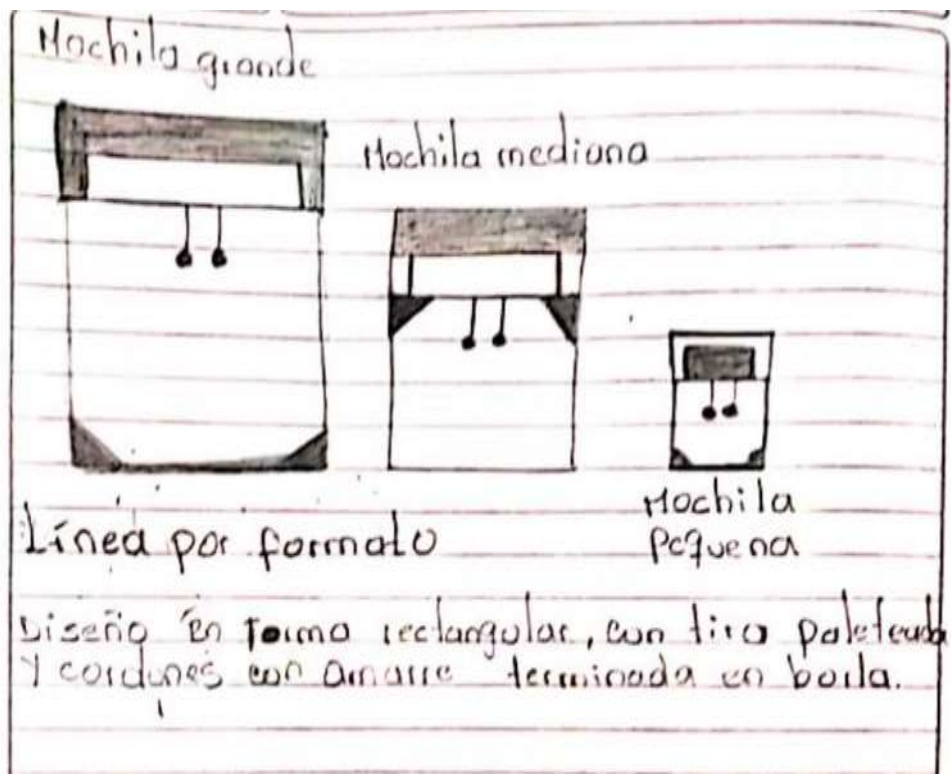 Mochila grande
Mochila mediana
Mochila
Pequena
Línea por formato
Diseño en forma rectangular, con tira paleteada
Y cordones con amarre terminada en borla.